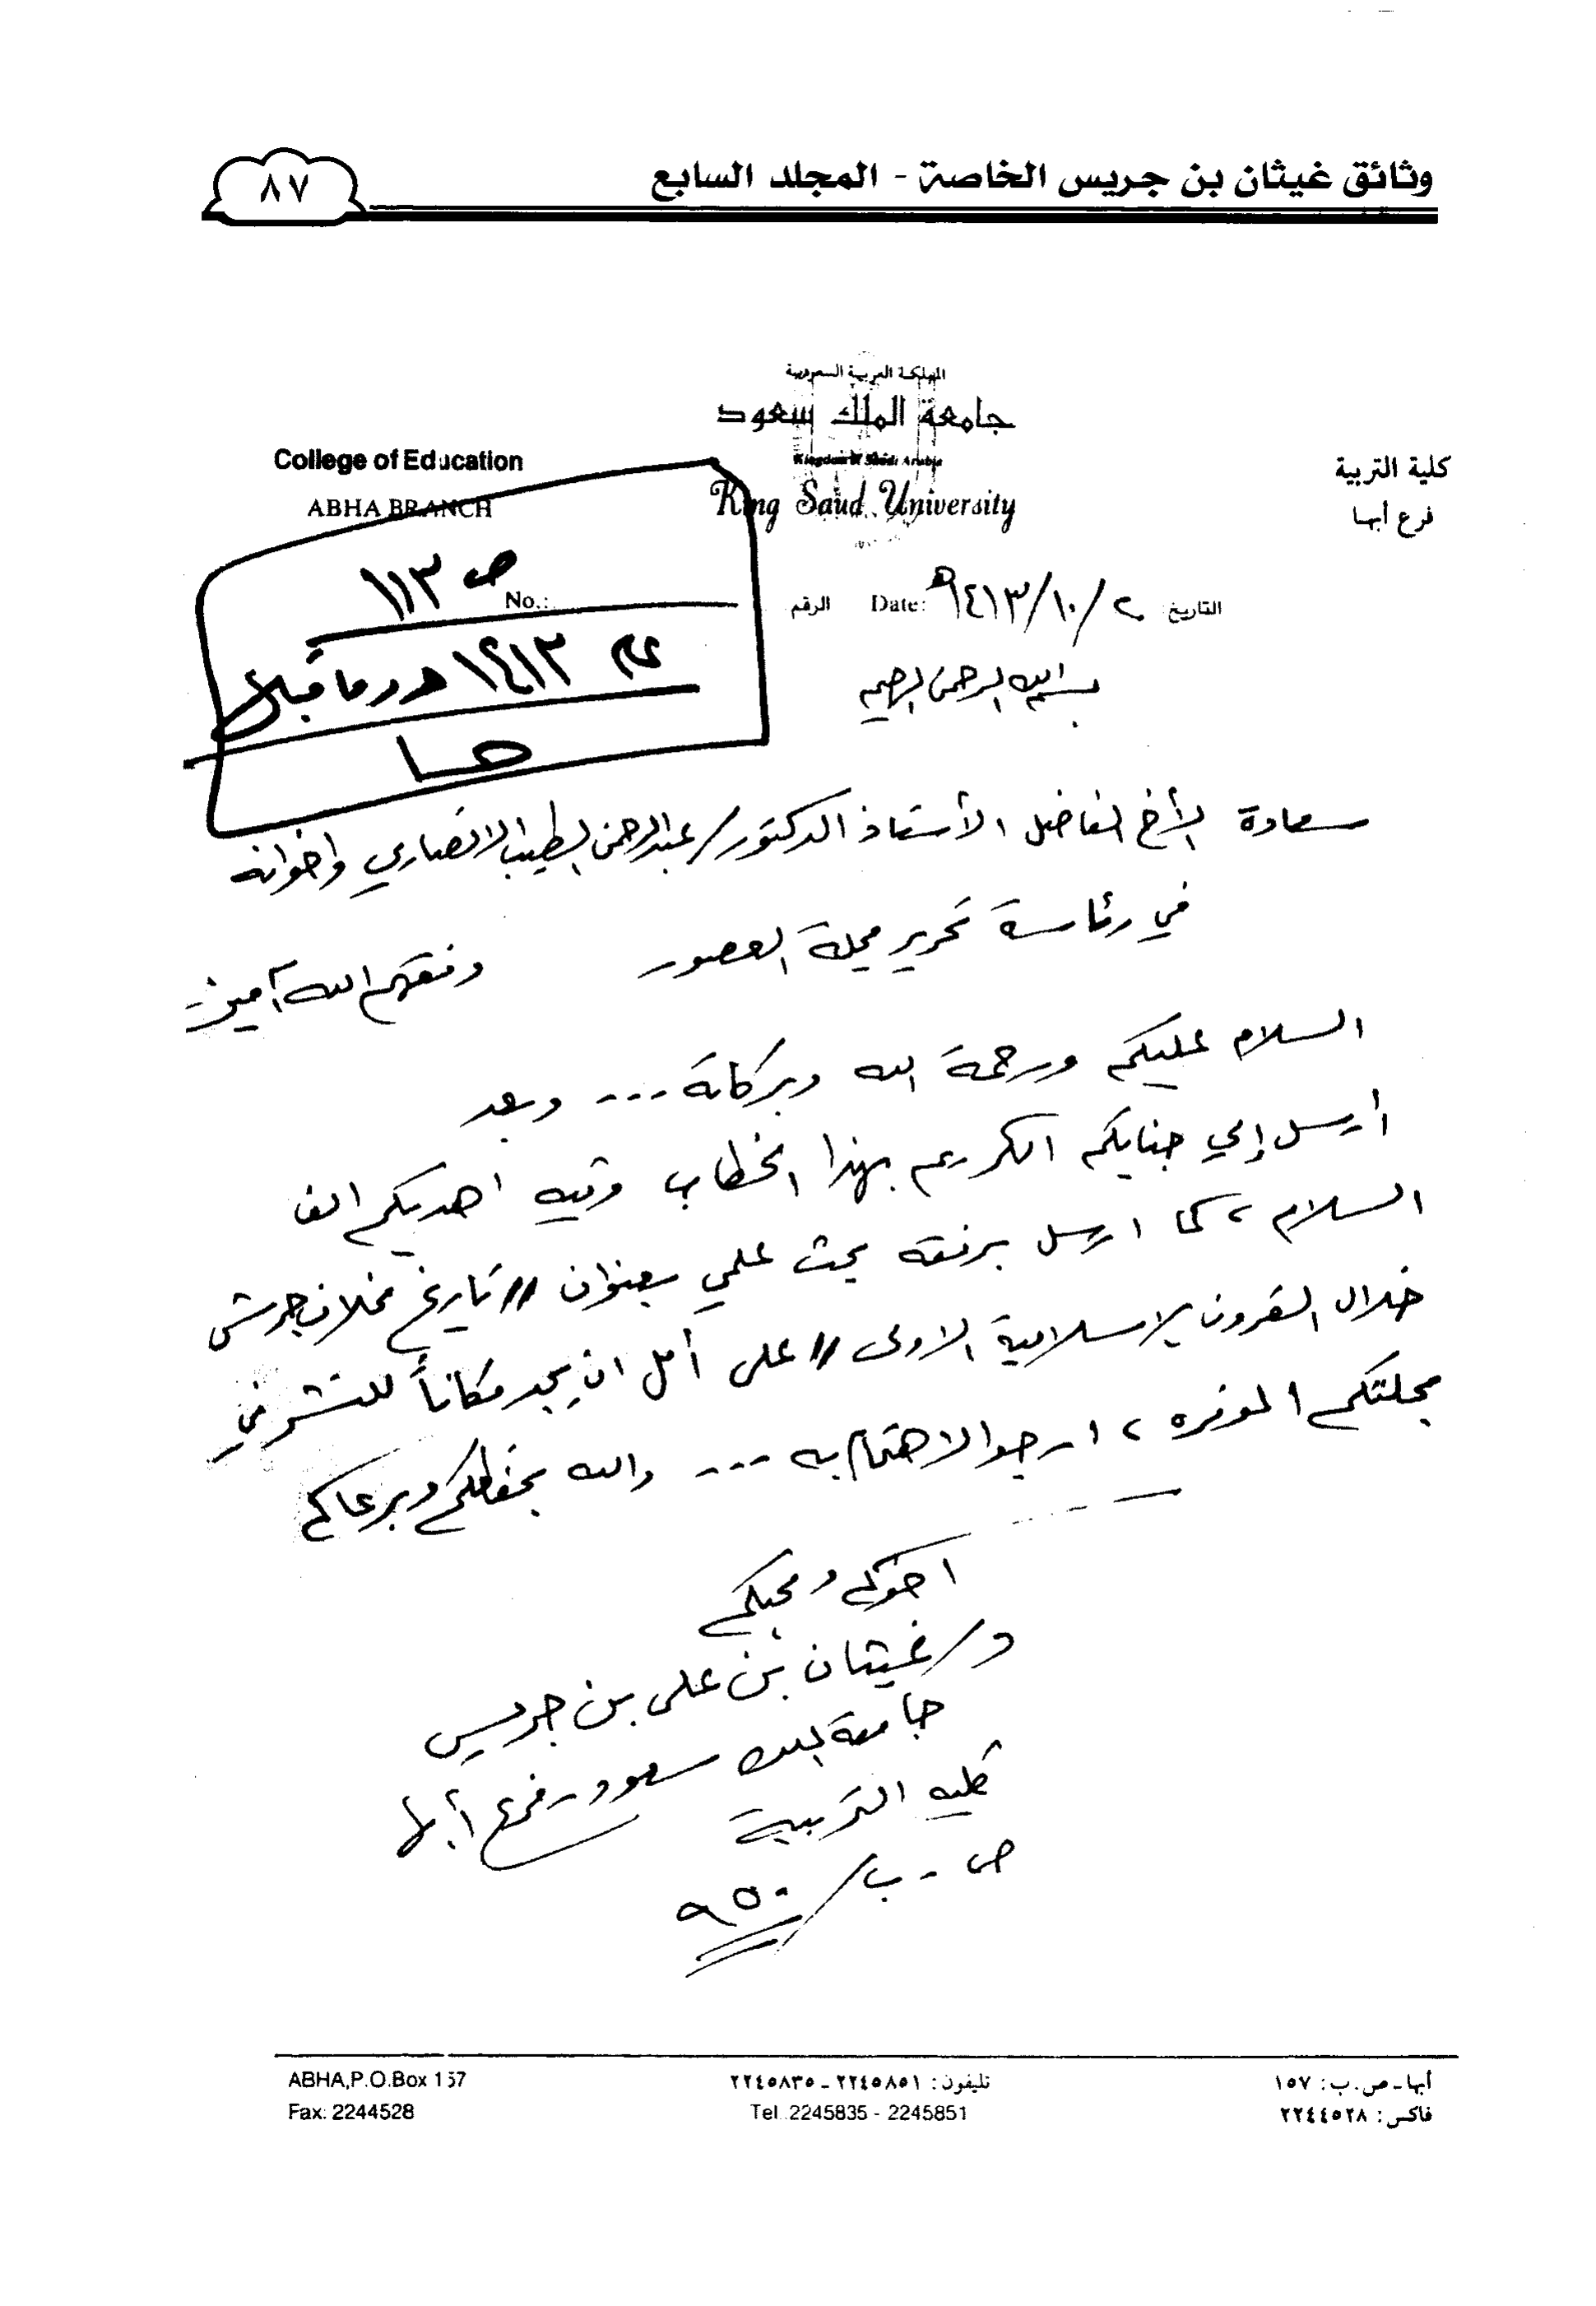 وثائق غيثان بن جريس الخاصة - المجلد السابع
٨٧
المملكة العربية السعودية
جامعة الملك سعود
Kingdom of Saudi Arabia
King Saud University
College of Education
ABHA BRANCH
كلية التربية
فرع أبها
التاريخ: ٢٠/١٠/١٤١٣هـ Date:
الرقم No.:
ص ١١٣
١٤١٣
بسم الله الرحمن الرحيم
سعادة الأخ الفاضل الأستاذ الدكتور/ عبدالرحمن الطيب الانصاري واخوانه
في رئاسة تحرير مجلة العصور وفقهم الله آمين
السلام عليكم ورحمة الله وبركاته --- وبعد
أرسل إلى جنابكم الكريم بهذا الخطاب وفيه اهديكم الف
السلام، كما ارسل برفقه بحث علمي بعنوان // تاريخ مخلاف جرش
خلال القرون الاسلامية الاولى // على أمل ان يجد مكاناً للنشر في
مجلتكم الموقره، ارجو الاهتمام به --- والله يحفظكم ويرعاكم
اخوكم ومحبكم
د/ غيثان بن على بن جريس
جامعة الملك سعود - فرع أبها
كليه التربية
ص - ب/ ٩٥٠
أبها - ص.ب: ١٥٧
فاكس: ٢٢٤٤٥٢٨
تليفون: ٢٢٤٥٨٥١ - ٢٢٤٥٨٣٥
Tel. 2245835 - 2245851
ABHA,P.O.Box 157
Fax: 2244528